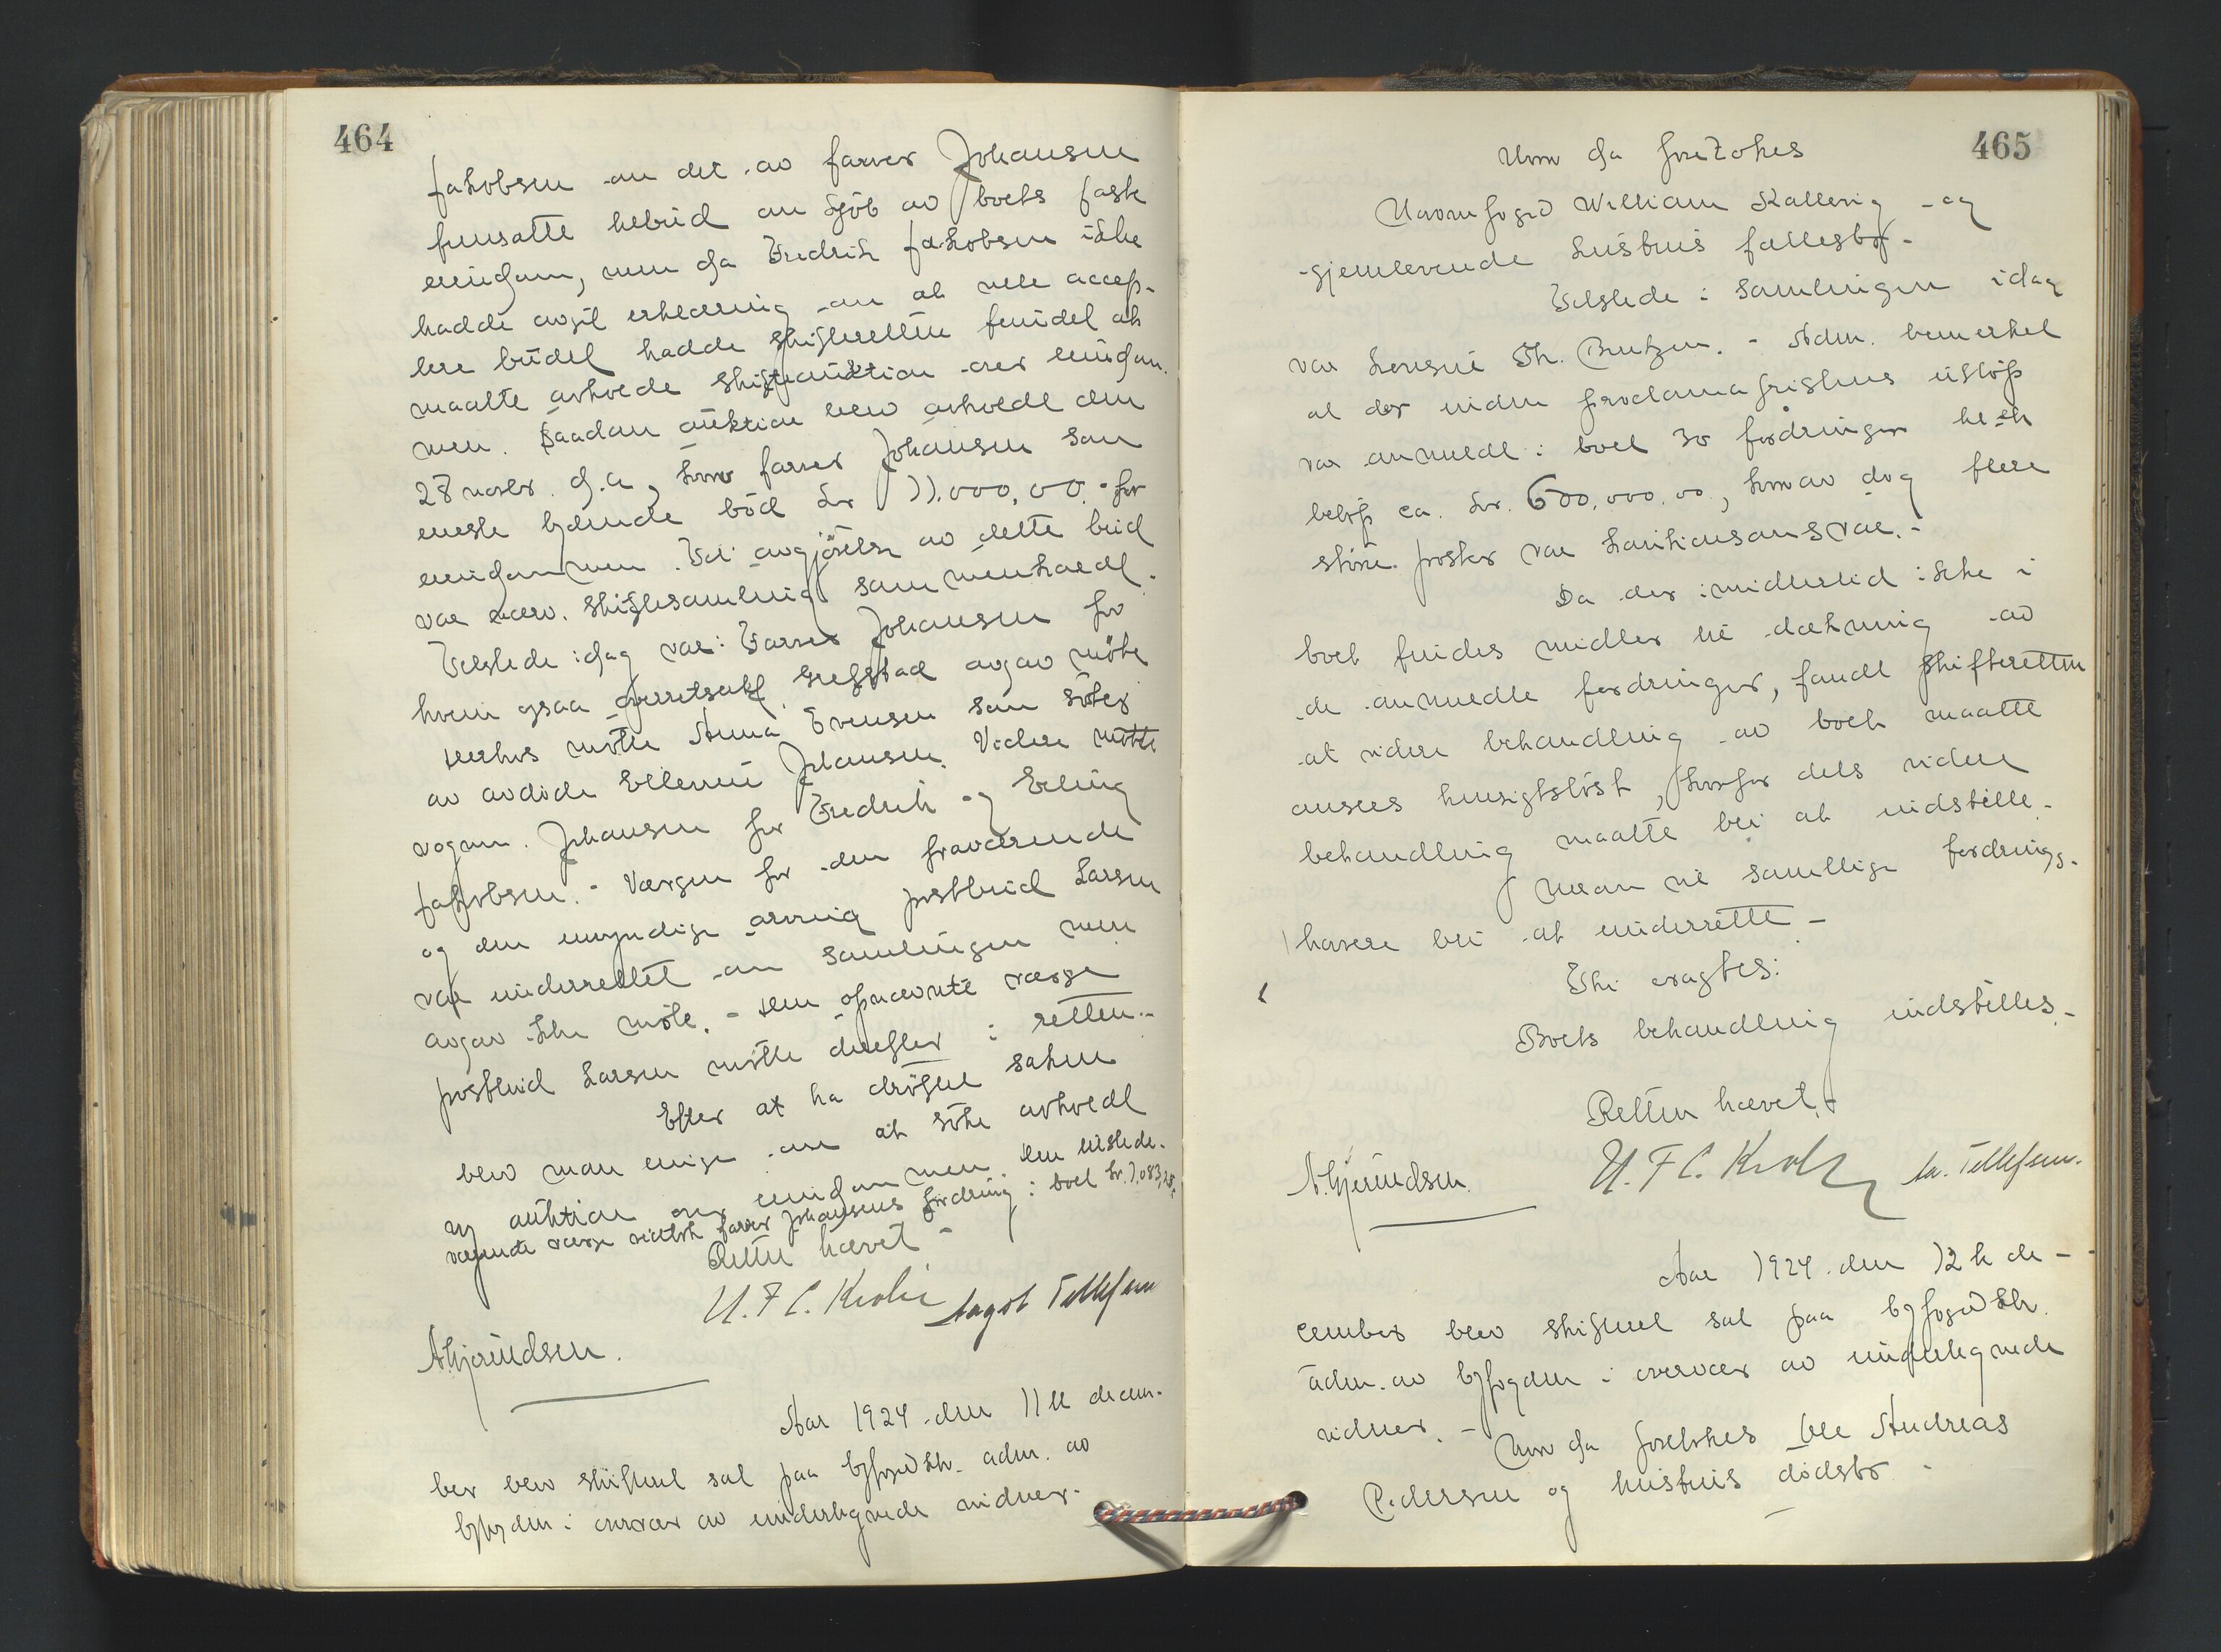 464
Jakobsen om det av farver Johansen
fremsatte tilbud om kjöb av boets faste
eiendom, men da Fredrik Jakobsen ikke
hadde avgit erklæring om at ville accep-
tere budet hadde skifteretten fundet at
maatte avholde skifteauktion over eiendom-
men. Saadan auktion blev avholdt den
28 novbr. d.a., hvor farver Johansen som
eneste bydende böd kr 11.000,00 for
eiendommen. Til avgjörelse av dette bud
var nærv. skiftesamling sammenkaldt.
Tilstede idag var: Farver Johansen for
hvem ogsaa overretssakf. Grefstad avgav möte
Derhos mötte Anna Evensen som söster
av avdöde Ellevine Johansen. Videre mötte
vognm. Johansen for Fredrik og Erling
Jakobsen. - Værgen for den fraværende
og den umyndige arving postbud Larsen
var underrettet om samlingen men
avgav ikke möte. - Den opnævnte værge
postbud Larsen mötte derefter i retten.-
Efter at ha dröftet saken
blev man enige om at söke avholdt
ny auktion over eiendommen. Den tilstede-
værende værge vedtok farver Johansens fordring i boet kr. 1.083,28.
Retten hævet -
U. F. C. Krohn Aagot Tellefsen
A. Gjerundsen.
Aar 1924 den 11te decem-
ber blev skifteret sat paa byfogdktr. adm. av
byfogden i overvær av undertegnede vidner.
465
Hvor da foretokes
Havnefoged William Kallevig og
gjenlevende hustrus fællesbo.-
Tilstede i samlingen idag
var konsul Th. Brutzen. - Adm. bemerket
at der inden proclamafristens utlöp
var anmeldt i boet 30 fordringer til et
belöp ca. kr. 600.000.00, hvorav dog flere
störe poster var kautionsansvar.-
Da der imidlertid ikke i
boet findes midler til dækning av
de anmeldte fordringer, fandt skifteretten
at videre behandling av boet maatte
ansees hensigtslöst, hvorfor dets videre
behandling maatte bli at indstille.-
Herom vil samtlige fordrings-
havere bli at underrette -
Thi eragtes:
Boets behandling indstilles.-
Retten hævet.-
A. Gjerundsen. U. F. C. Krohn Aa. Tellefsen.
Aar 1924 den 12te de-
cember blev skifteret sat paa byfogdktr.
adm. av byfogden i overvær av undertegnede
vidner. -
Hvor da foretokes Ole Andreas
Pedersen og hustrus dödsbo -